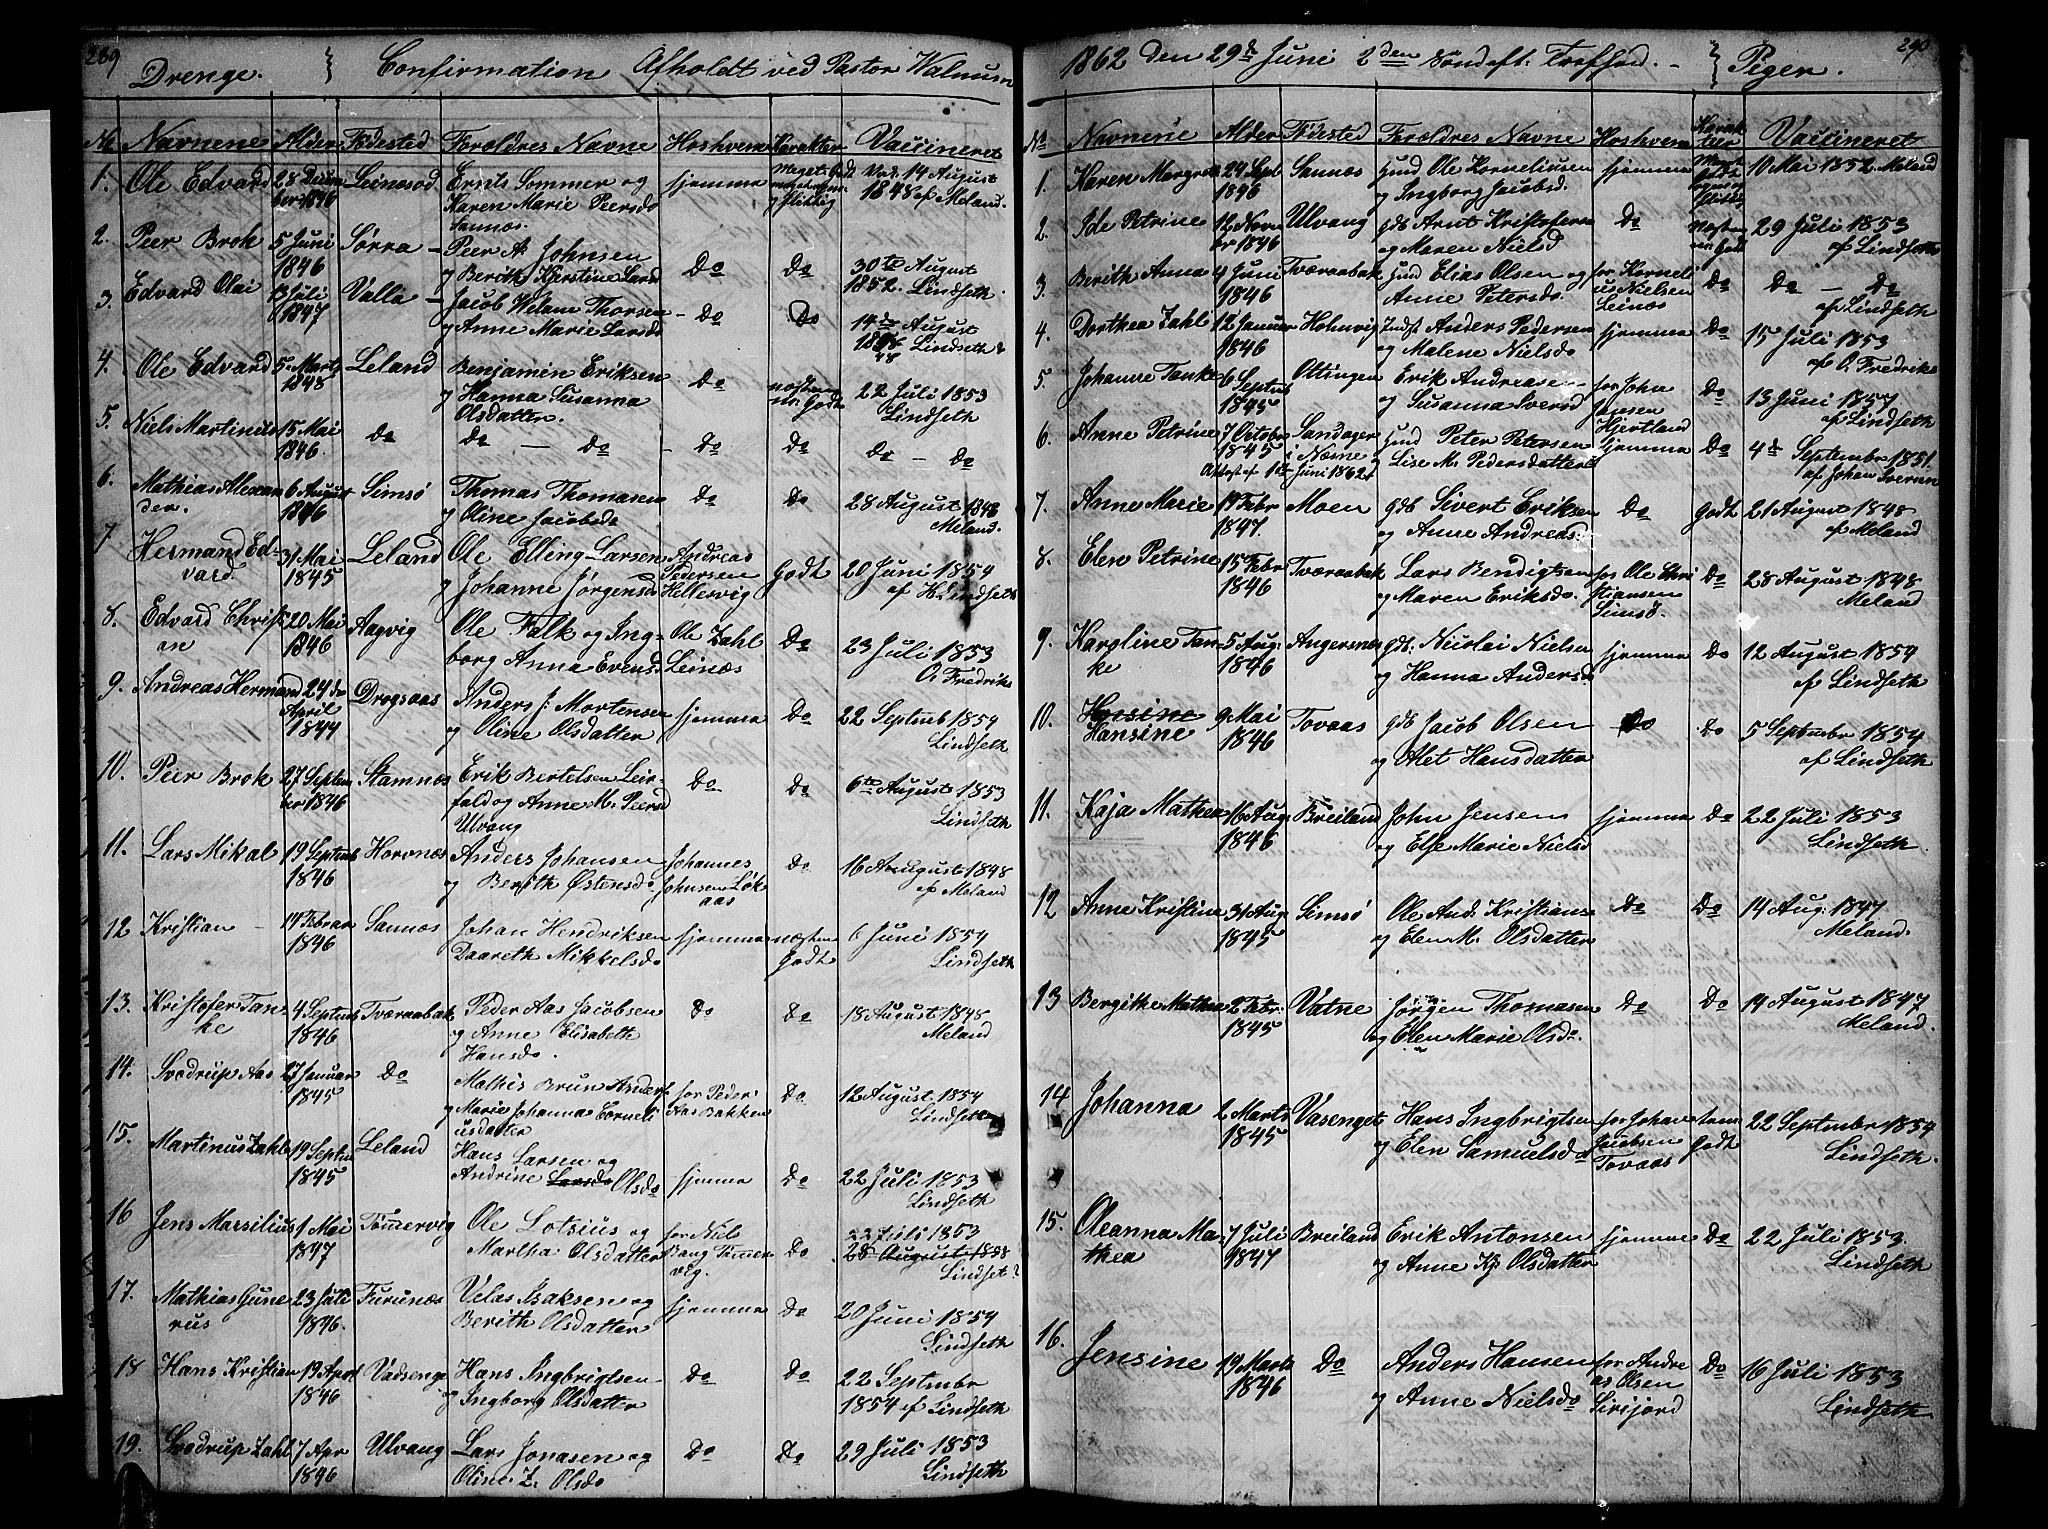 289
Drenge. Confirmation Afholdt ved Pastor Walnum
No Navnene Alder Fødested Forældres Navne Hoshvem Karakter Vaccineret
1. Ole Edvard 28 Decem Leinesod Ernts Sommer og hjemme Meget Godt Vac. 14 August
ber 1846 Karen Marie Peersdo og flittig 1848 af Meland.
Sannæs
2. Peer Brok 5 Juni Sørra Peer A. Johnsen
1846 og Berith Kjerstine Larsd Do Do 30te August
1852. Lindseth
3. Edvard Olai 13 Juli Valla Jacob Welam Thorsen Do Do
1847 og Anne Marie Larsdo 14de August
18 48 Lindseth
4. Ole Edvard 5 Marts Leland Benjamin Eriksen Do næsten 22 Juli 1853
1848 og Hanna Susanna Godt Lindseth
Olsdatter.
5. Niels Martinus 15 Mai Do Do - Do - Do Do Do - Do
1846.
6. Mathias Alexan 6 August Simsø Thomas Thomasen Do Do 28 August 1848
der. 1846 og Oline Jacobsdo Meland.
7 Hermand Ed- 31 Mai Leland Ole Elling Larsen Andreas Godt 20 Juni 1854
vard 1845 og Johanne Jørgensdo Pedersen af H Lindseth
Hellesvig
8. Edvard Christi 20 Mai Aagvig Ole Falk og Ing- Ole Zahl Do 23 Juli 1853
an 1846 borg Anna Evensd Leinæs O. Fredriks
9. Andreas Hermand 24de Dregsaas Anders J. Mortensen hjemme Do 22 Septemb 1854
April og Oline Olsdatter Lindseth
1844
10. Peer Brok 27 Septem Stamnæs Erik Bertelsen Leir- Do Do 6te August 1853
ber 1846 fald og Anne M. Peersd Lindseth
Ulvang
11. Lars Mikal 19 Septemb Hornnæs Anders Johansen Johannes Do 16 August 1848
1846 og Berith Østensdo Johnsen Løk af Meland
aas
12 Kristian 14 Febrar Sannæs Johan Hendriksen hjemme næsten 6 Juni 1854
1846 Daareth Mikkelsdo Godt Lindseth
13. Kristofer Tan- 4 Septemb Tværaabak Peder Aas Jacobsen Do Do 18 August 1848
ke 1846 og Anne Elisabeth Meland
Hansdo.
14. Svadrup Aas 27 Januar Do Mathis Brun Anders for Peder Do 12 August 1854
1845 og Marie Johanna Corneli Aas Bakken Lindseth
usdatter
15. Martinus Zahl 19 Septm Leland Hans Larsen og
1845 Andrine Larsdo Olsdo hjemme Do 22 Juli 1853
Lindseth
16 Jens Marsilius 1 Mai Tømervig Ole Lotsius og for Niels Do 22 Juli 1853
1847 Martha Olsdatter Bang Tømer 28 August 1858
vig. Lindset
17. Mathias Gune 23 Juli Furunæs Velas Isaksen og hjemme Do 20 Juni 1854
rius 1846. Berith Olsdatter Lindseth
18 Hans Kristian 13 April Vadsenge Hans Ingbrigtsen Do Do 22 Septembr
1846 og Ingborg Olsdatter 1854 af Lindseth
19. Svodrup Zahl 7 Apr Ulvang Lars Jonasen og Do Do 29 Juli 1853
1846 Oline Z. Olsdo Lindseth
290
1862 den 29de Juni 2den Søndeft. Trefhed. Piger.
No Navnene Alder Fødested Forældres Navne Hoshvem Karak Vaccineret
ter
1. Karen Margrete 24 Sept Sannæs Hund Ole Korneliusen hjemme Meget 10 Mai 1852. Meland
1846 og Ingborg Jacobsd. Godt
2. Ide Petrine 12 Novm Ulvang gdb Arnt Kristofersen Do Næsten 29 Juli 1853
br 1846 og Maren Nielsd Godt af Lindseth
3. Berith Anna 4 Juni Tværaabak Hund Elias Olsen og for Kornel Do Do - Do
1846 Anne Petersdo. ius Nielsen af Lindseth
Leinæs
4. Dorthea Zahl 12 Januar Holmvig Indst Anders Pedersen hjemme Do 15 Juli 1853
1846 og Malene Nielsdo af O. Fredriks
5. Johanne Tanke 6 Septmb Ottingen Erik Andreasen for John Do 13 Juni 1857
1845 og Susanna Iversd Jensen af Lindseth
Hjertland
6. Anne Petrine 7 October Sandager Hund Peter Petersen hjemme Do 4de Septembr 1851.
1845 i Næsne Lise M. Pedersdatter af Johan Iversen
Attest af 1ste Juni 1862
7. Anne Marie 19 Febr Moen gdb Sivert Eriksen Do Godt 21 August 1848
1847. og Anne Andreasd: af Meland
8. Elen Petrine 15 Febr Tværaabak Lars Bendigtsen for Ole Chri Do 28 August 1848
1846 og Maren Eriksdo stiansen Meland
Simsø.
9. Karoline Tan- 5 Aug. Angersnæs gdb. Nicolai Nielsen hjemme Do 12 August 1854
ke 1846 og Hanna Andersdo af Lindseth
10. Hansine 9 Mai Tovaas gdb Jacob Olsen Do Do 5 Septmbr 1854
Hansine 1846 og Alet Hansdatter af Lindseth
11. Kaja Mathea 16 Aug. Breiland John Jensen hjemme Do 22 Juli 1853
1846 og Else Marie Nielsd Lindseth.
12 Anne Kristine 31 Aug Simsø Ole And. Kristians Do Do 14 Aug. 1847
1845 og Elen M. Olsdatter Meland.
13 Bergitte Mathea 2 Febr. Vatne Jørgen Thomasen Do Do 14 August 1847
1845 og Elen Marie Olsdo. Meland.
14 Johanna 2 Marts Vasenget Hans Ingbrigtsen for Johan tem 22 Septembr 1854
1845 og Elen Samuelsdo Jacobsen Godt Lindseth.
Tovaas
15. Oleanna Ma- 7 Juli Breiland Erik Antonsen hjemme Do 22 Juli 1853.
thea 1847 og Anne Kj. Olsdatter Lindseth
16. Jensine 19 Marts Do Anders Hansen for Andre Do 16 Juli 1853
1846 og Anne Nielsdo as Olsen Lindseth
Sirijord